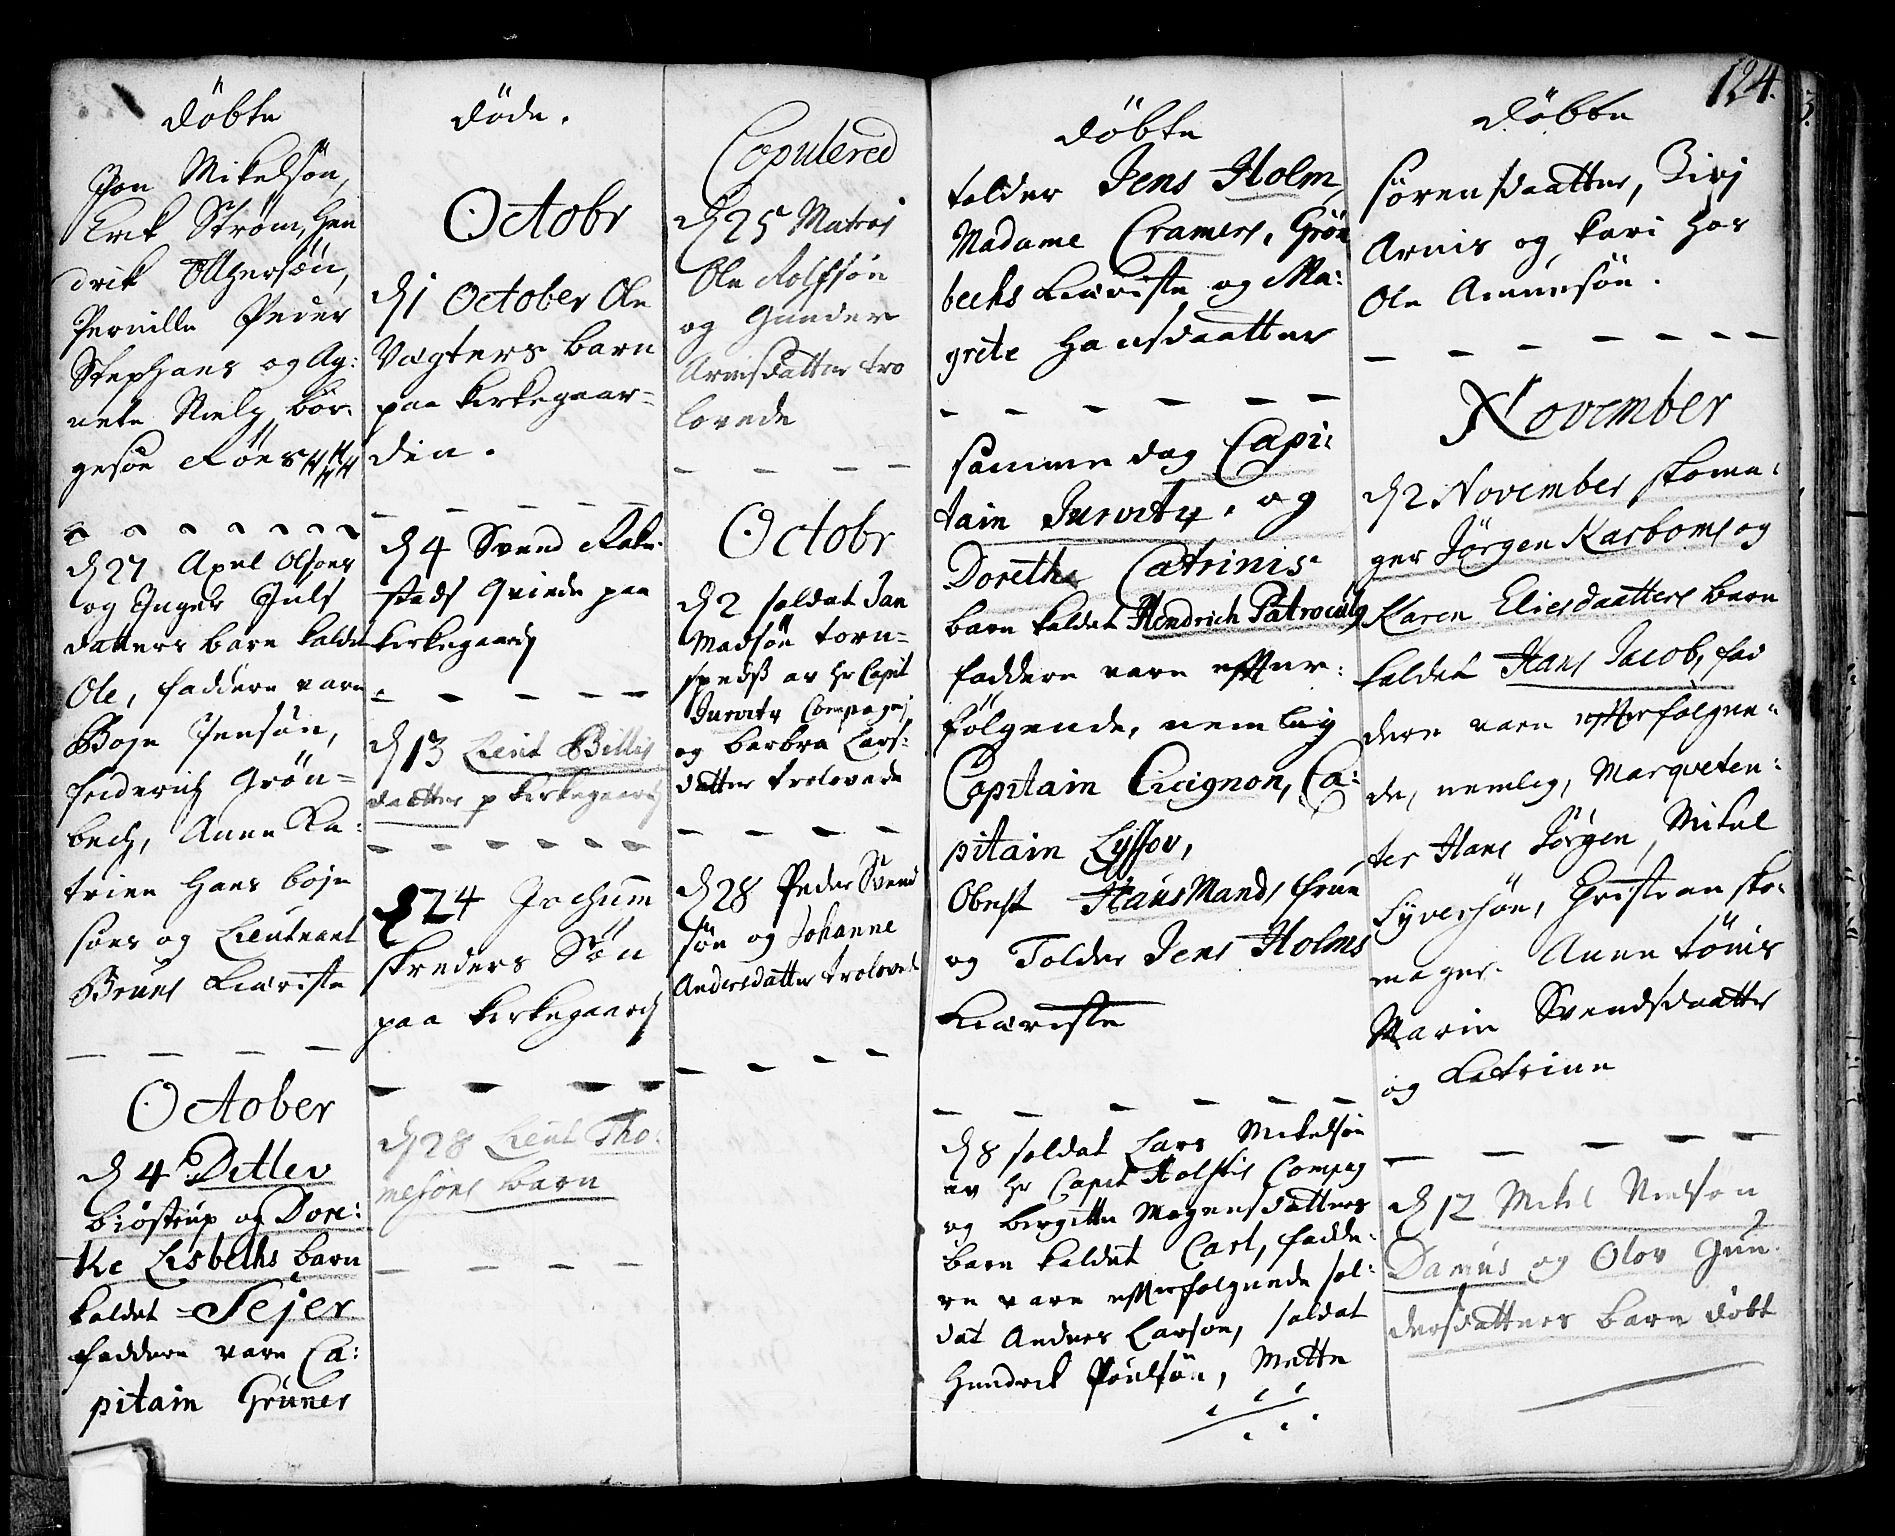 Döbte
Jon Mikelsön,
Erik Ström, Hen
drik Ollgersøn,
Pernille Peder
Stephans og Ag:
nete Niels bör:
gesøn Röes
d 27 Axel Olsøns
og Inger Juls
datters barn kaldet
Ole, faddere vare
Boje Jensøn,
friderich Grön=
bech, Anne Ka:
trine Hans boje
søns og Lieutnant
Bruns Kieriste
October
d 4 Ditlev
biöstrup og Dore:
the Lisbeths barn
kaldet Sejer
faddere vare Ca:
pitain Grüner
Döde.
Octobr
d 1 October Ole
Vægters barn
paa kirkegaar=
den.
d 4 Svend Rak:
stads Qvinde paa
kirkegaard
d 13 Lieut Billis
daatter p kirkegaard
d 24 Jochum
skreders Søn
paa kirkegaard
d 28 Lieut Tho:
mesøns barn
Copulered
d 25 Matros
Ole Rolfsön
og Gunder
Arnisdatter tro
lovede
Octobr
d 2 soldat Jan
Madsön torn=
spedss av Hr Capit
Jurvity Compagnj
og barbra Lars:
datter trolovede
d 28 Peder Svend
søn og Johanne
Andersdatter trolovede
124.
Döbte
tolder Jens Holm,
Madame Cramers, Grön
bechs Kieriste og Ma:
grete Hansdaatter
samme dag Capi:
tain Jurvity, og
Dorethe Catrinis
barn kaldet Hendrich Patroculus
faddere vare effter:
fölgende, nemlig
Capitain Cicignon, Ca:
pitain Lyssov,
Obrst HausMands frue
og Tolder Jens Holms
Kieriste
d 8 soldat Lars Mikelsön
av Hr Capit Holstis Compag
og birgitte Mogensdatters
barn kaldet Carl, fadde:
re vare effterfølgende sol:
dat Anders Larson, soldat
Hendrick Poulsön, Mette
Döbte
sörensdaatter, Birj
Arnis og kari Hos
Ole Amunsön.
November
d 2 November skoma:
ger Jörgen Karboms og
Karen Eliesdaatters barn
kaldet Hans Jacob, fad
dere vare effterfølgen=
de, nemlig, Marqveten:
ter Hans Jörgen, Mikel
Syversøn, Christian sko:
mager. Anne tönis
Marie Svendsdaatter
og Katrine
d 12 Mikel Nielson
Damus og Olov Gun:
dersdatters barn döbt